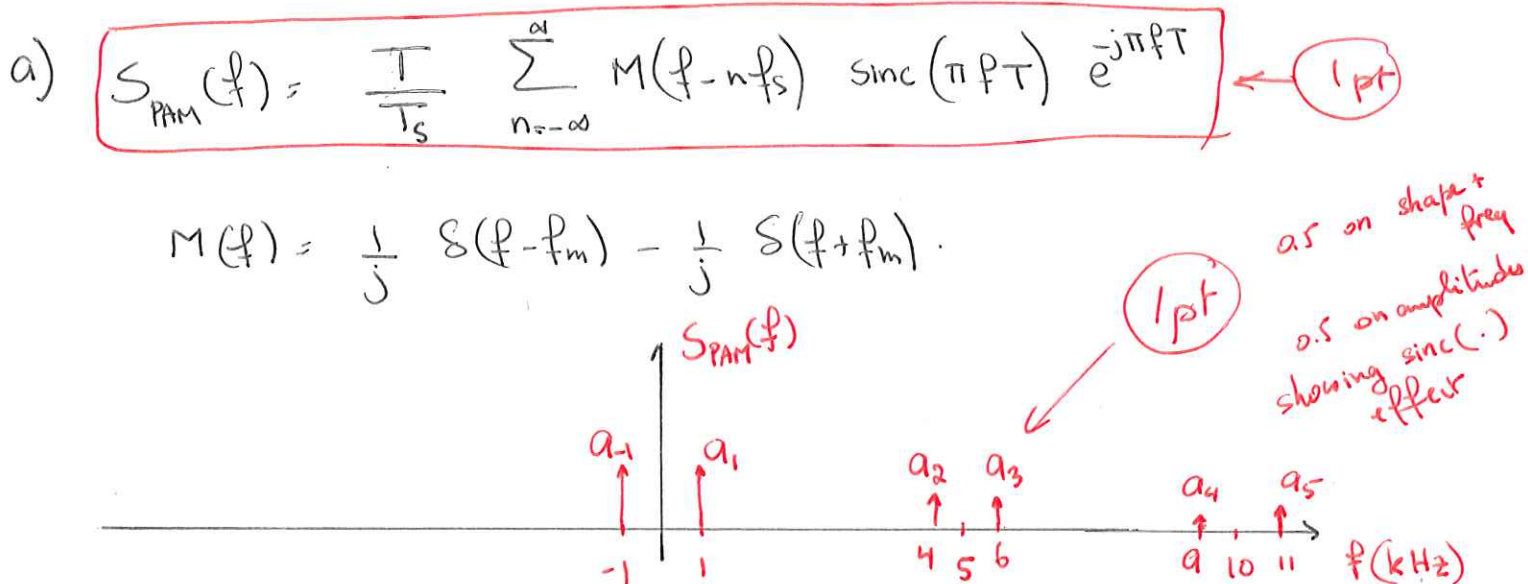 a) S_PAM(f) = T/T_S ∑_{n=-∞}^{∞} M(f-nf_s) sinc(πfT) e^{-jπfT} ← 1 pt
M(f) = 1/j δ(f-f_m) - 1/j δ(f+f_m).
0.5 on shape + freq
0.5 on amplitudes
showing sinc(.)
effect
1 pt
S_PAM(f)
a_-1 a_1 a_2 a_3 a_4 a_5
-1 1 4 5 6 9 10 11 f(kHz)